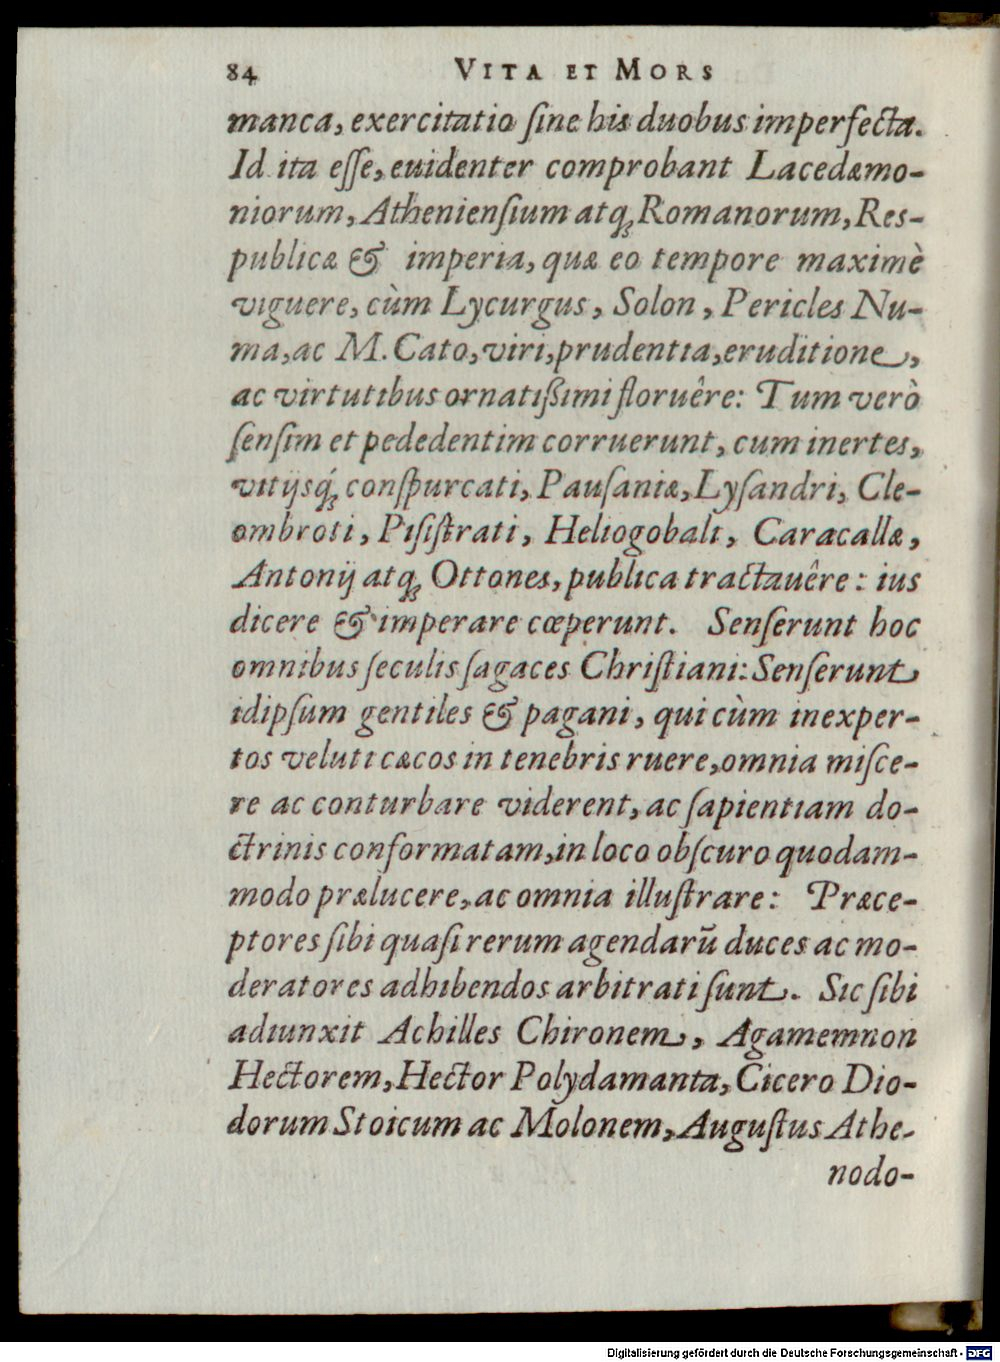 84 VITA ET MORS
manca, exercitatio ſine his duobus imperfecta.
Id ita eſſe, euidenter comprobant Lacedæmo-
niorum, Athenienſium atq́ꝫ Romanorum, Res-
publicæ & imperia, quæ eo tempore maximè
viguere, cùm Lycurgus, Solon, Pericles Nu-
ma, ac M. Cato, viri, prudentia, eruditione,
ac virtutibus ornatißimi floruêre: Tum verò
ſenſim et pededentim corruerunt, cum inertes,
vitijsq́ꝫ conſpurcati, Pauſaniæ, Lyſandri, Cle-
ombroti, Piſiſtrati, Heliogobali, Caracallæ,
Antonij atqꝫ Ottones, publica tractauêre: ius
dicere & imperare cœperunt. Senſerunt hoc
omnibus ſeculis ſagaces Chriſtiani: Senſerunt
idipſum gentiles & pagani, qui cùm inexper-
tos veluti cæcos in tenebris ruere, omnia miſce-
re ac conturbare viderent, ac ſapientiam do-
ctrinis conformatam, in loco obſcuro quodam-
modo prælucere, ac omnia illuſtrare: Præce-
ptores ſibi quaſi rerum agendarũ duces ac mo-
deratores adhibendos arbitrati ſunt. Sic ſibi
adiunxit Achilles Chironem, Agamemnon
Hectorem, Hector Polydamanta, Cicero Dio-
dorum Stoicum ac Molonem, Auguſtus Athe-
nodo-
Digitalisierung gefördert durch die Deutsche Forschungsgemeinschaft - DFG